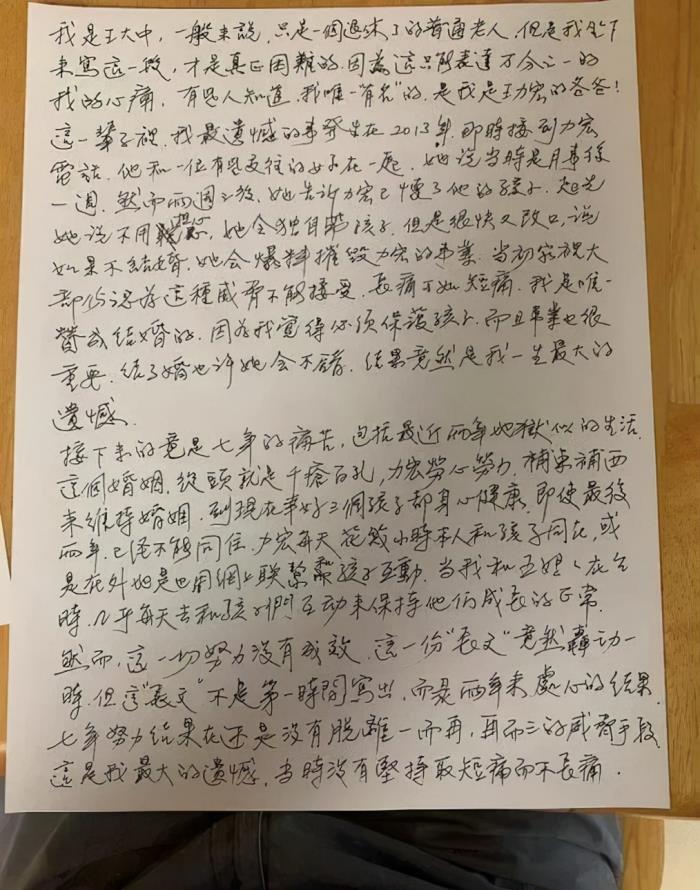 我是王大中，一般来說，只是一個退休了的普通老人，但是我今下
来寫這一段，才是真正困難的，因為這只能表達万分之一的
我的心痛。有些人知道，我唯一"有名"的，是我是王力宏的爸爸！
這一輩子裡，我最遺憾的事發生在2013年，即時接到力宏
電話，他和一位有些交往的女子在一起，她說當時是月事後
一週，然而兩週之後，她告訴力宏已懷了他的孩子，起先
她說不用担心，她会独自帶孩子，但是很快又改口，說
如果不結婚，她会爆料摧毀力宏的事業，當初家裡大
都认为這種威脅不能接受，長痛不如短痛，我是唯一
贊成結婚的，因为我覺得必須保護孩子，而且事業也很
重要，結了婚也许她会不錯，結果竟然是我一生最大的
遺憾。
接下来的竟是七年的痛苦，包括最近兩年地獄似的生活，
這個婚姻，從頭就是千瘡百孔，力宏勞心勞力，補東補西
来維持婚姻，到現在幸好三個孩子都身心健康，即使最後
兩年，已經不能同住，力宏每天花幾小時本人和孩子同在，或
是在外地是也用網上联繫和孩子互動，當我和五姐，在台
時，几乎每天去和孩子們互动来保持他们成長的正常。
然而，這一切努力没有成效，這一份"長文"竟然轟动一
時，但這"長文"不是第一時間寫出，而是兩年来處心的結果，
七年努力結果在还是没有脱離一而再，再而三的威脅手段
這是我最大的遺憾，當時没有堅持取短痛而不長痛．